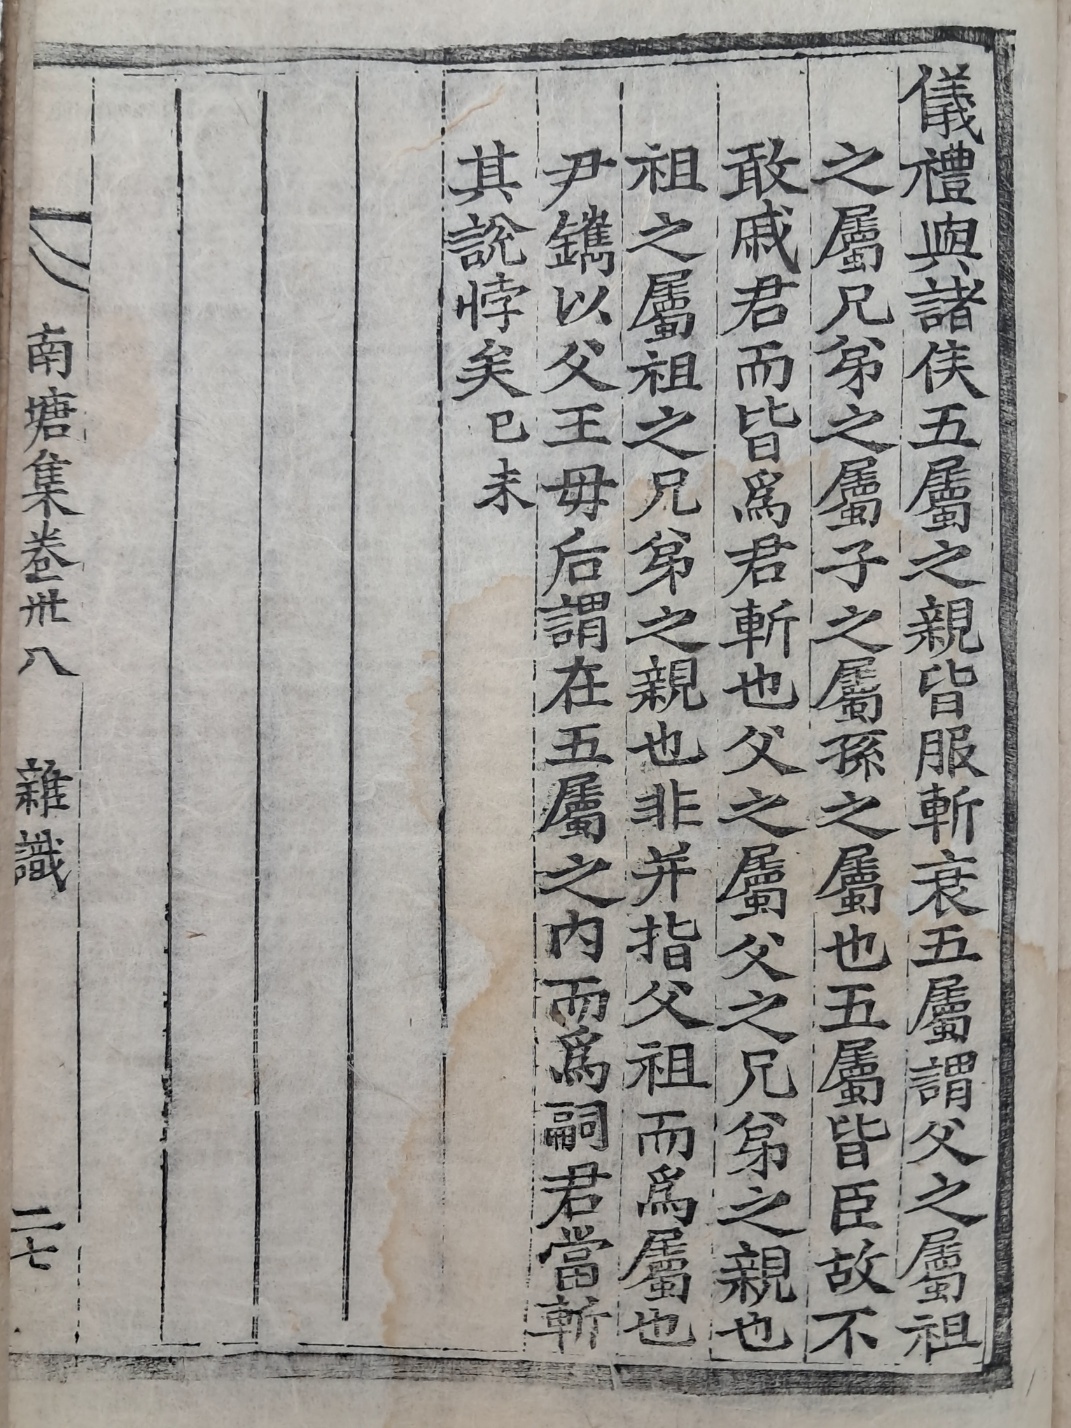 儀禮與諸侯五屬之親皆服斬衰五屬謂父之屬祖
之屬兄弟之屬子之屬孫之屬也五屬皆臣故不
敢戚君而皆爲君斬也父之屬父之兄弟之親也
祖之屬祖之兄弟之親也非并指父祖而爲屬也
尹鑴以父王母后謂在五屬之內而爲嗣君當斬
其說悖矣己未
南塘集卷卅八 雜識 二七